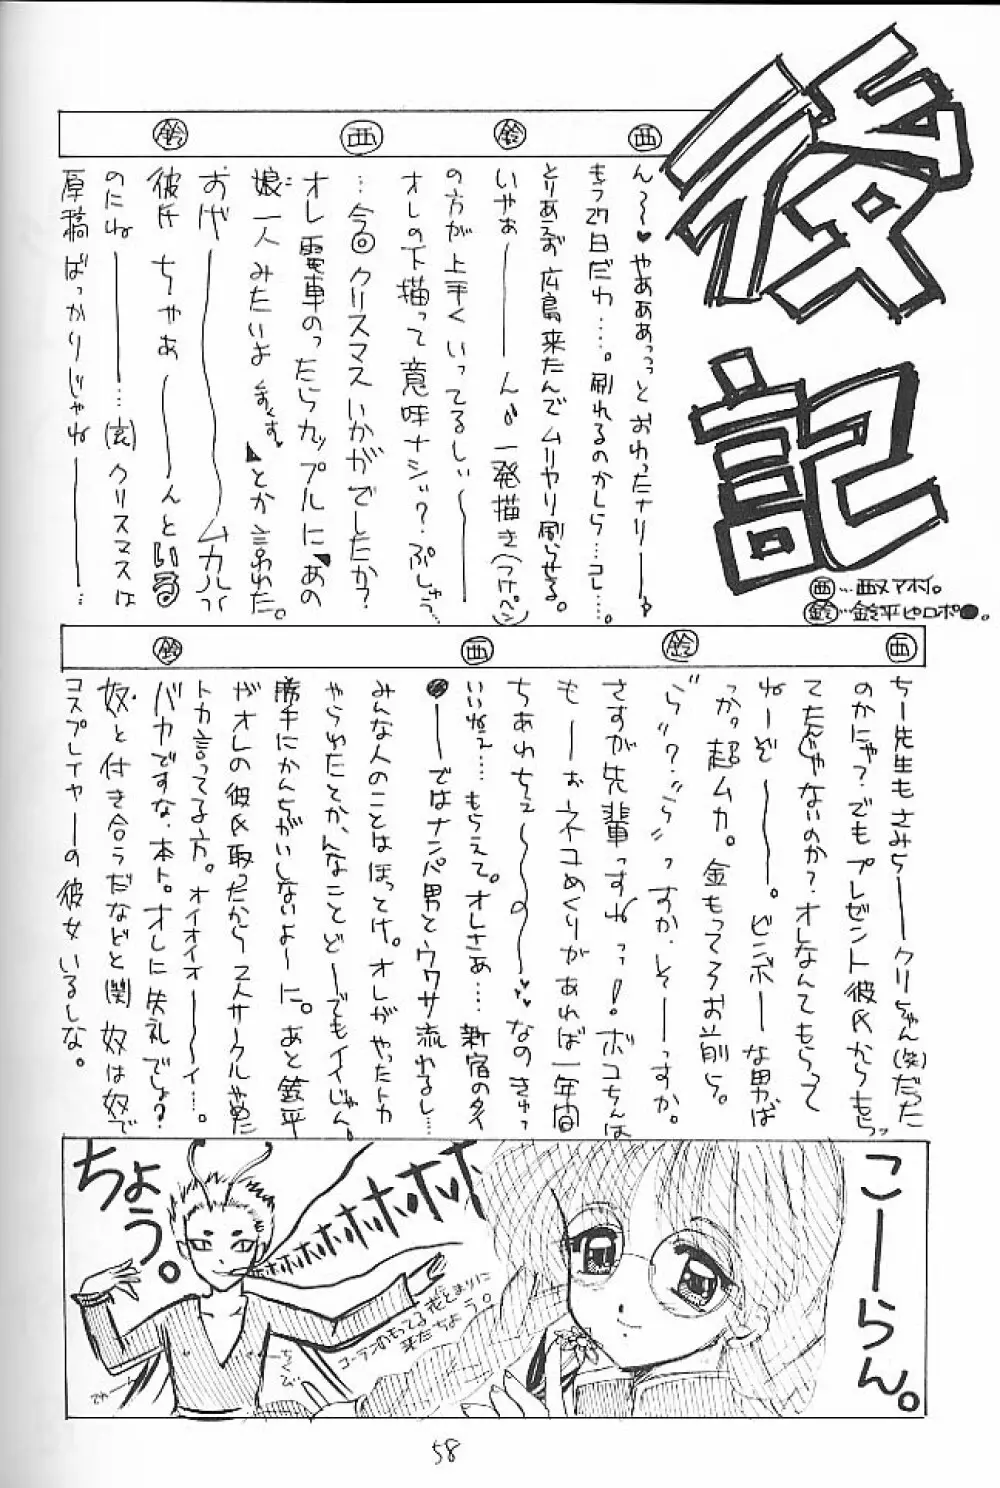 後記
西…西ヌアホイ。
鈴…鈴平ピロポ●。
西
ん〜〜♥やああぁっっとおわったナリ――
もう27日だわ……。刷れるのかしら…コレ…。
とりあえず広島来たんでムリヤリ刷らせる。
鈴
いやぁ――――ん♂一発描き(つけペン)
の方が上手くいってるしぃ―――
オレの下描って意味ナシ!?ぷしゅう…
西
…今回クリスマスいかがでしたか?
オレ電車のったらカップルに「あの
娘一人みたいよくすくす」とか言われた。
おや――――ムカルバ
鈴
彼氏ちゃぁ―――んといる
のにね――――…(玄)クリスマスは
原稿ばっかりじゃね――――…
西
ちー先生もさみしー――クリちゃん(笑)だった
のかにゃ?でもプレゼント彼氏からもらっ
てたんじゃないのか?オレなんてもらって
ねーぞ―――。ビンボーな男ば
っか。超ムカ。金もってろお前ら。
鈴
"ら"?"ら"っすか。そーっすか。
さすが先輩っすねっっ!ボコちんは
もーぉネコめくりがあれば一年間
ちあわちぇ〜〜♥♥なのきゅっ
西
いいねぇ……もらえて。オレさぁ……新宿の夕
●――ではナンパ男とウワサ流れるし…
みんな人のことはほっとけ。オレがやったトカ
やられたとか、んなことど―でもイイじゃん。
勝手にかんちがいしないよーに。あと鈴平
がオレの彼氏取ったから2人サークルやめた
トカ言ってる方。オイオイオ――イ…。
鈴
バカですな、本ト。オレに失礼でしょ?
奴と付き合うだなどと(関)奴は奴で
コスプレイヤーの彼女いるしな。
こーらん。
ちょう。
ホホホホホホホ
コーランのもってる花とまりに
来たちょう。
ちくび
58